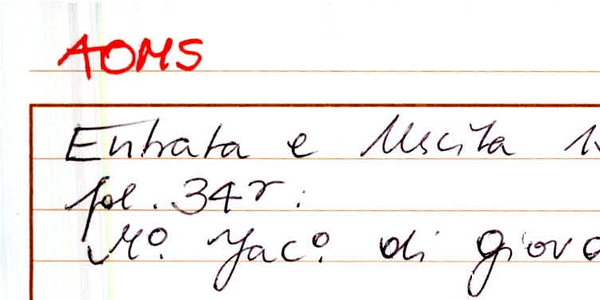 AOMS
Entrata e Uscita 1
fol. 34r:
Mo. Jaco. di giova